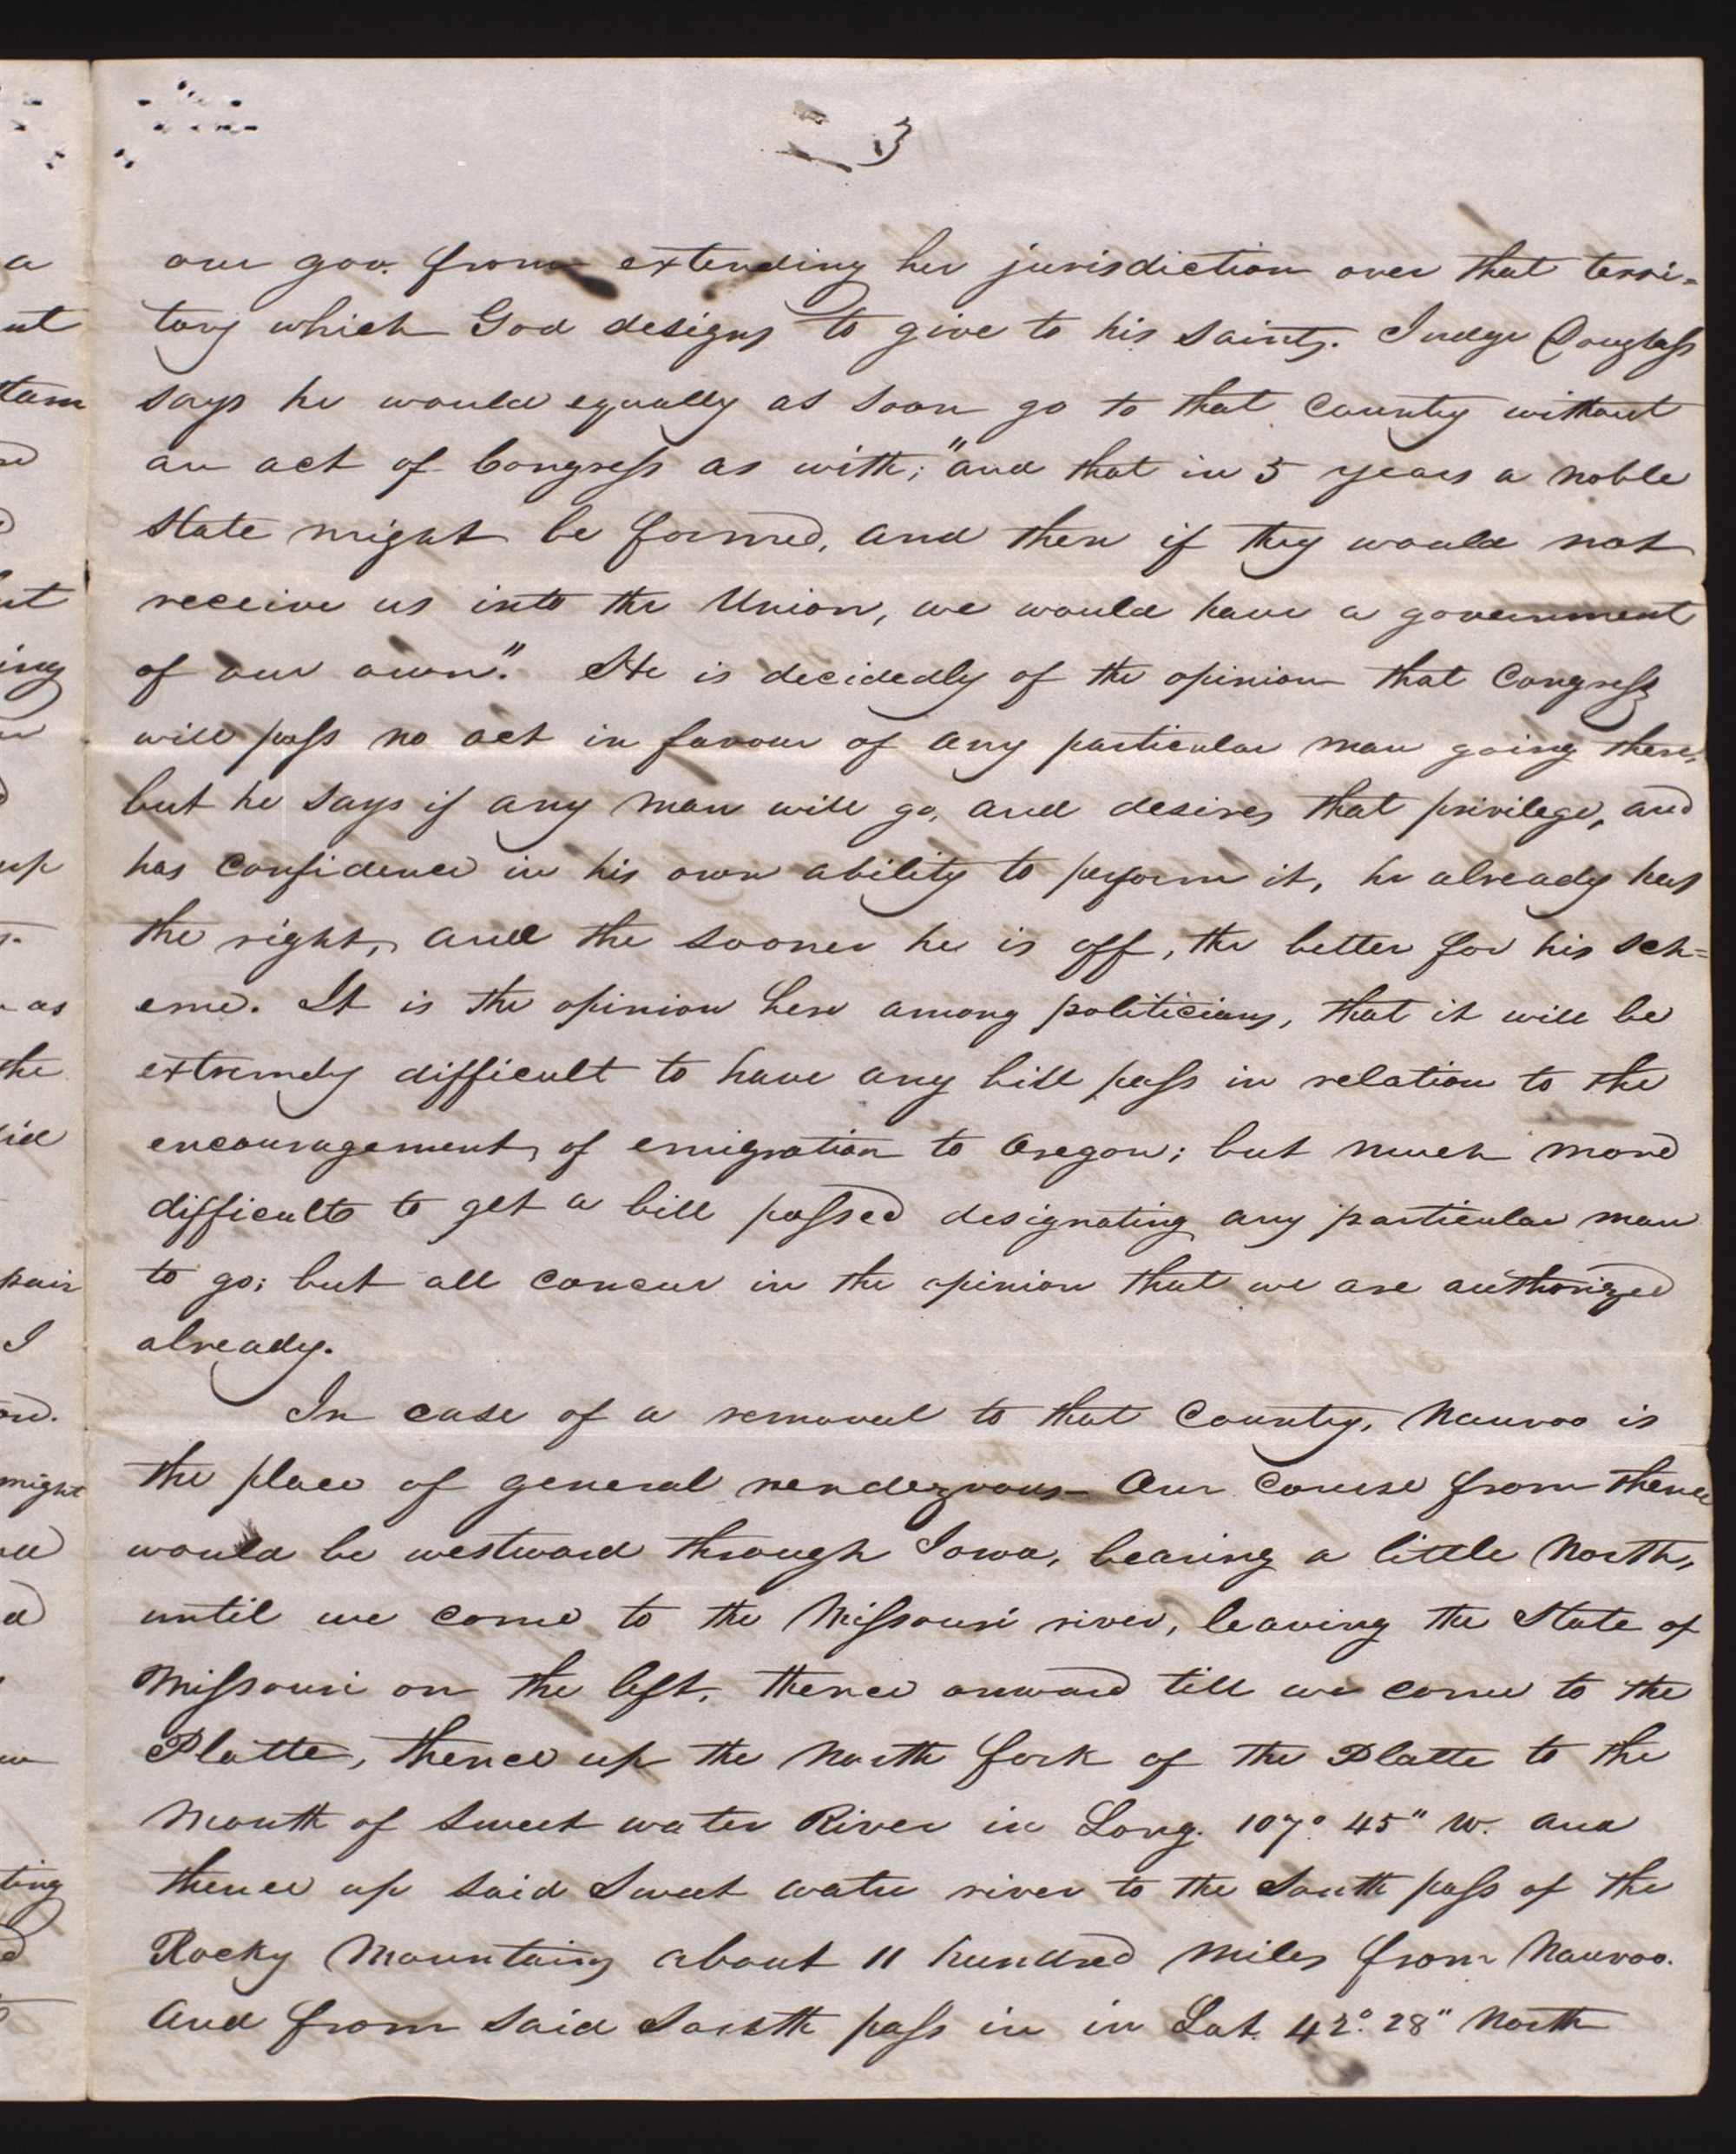 3
our gov. from extending her jurisdiction over that terri-
tory which God designs to give to his saints. Judge Douglass
says he would equally as soon go to that country without
an act of Congress as with; "and that in 5 years a noble
State might be formed, and then if they would not
receive us into the Union, we would have a government
of our own". He is decidedly of the opinion that Congress
will pass no act in favour of any particular man going there,
but he says if any man will go, and desires that privilege, and
has confidence in his own ability to perform it, he already has
the right, and the sooner he is off, the better for his sch=
eme. It is the opinion here among politicians, that it will be
extremely difficult to have any bill pass in relation to the
encouragement of emigration to Oregon; but much more
difficult to get a bill passed designating any particular man
to go; but all concur in the opinion that we are authorized
already.
In case of a removal to that country, Nauvoo is
the place of general rendezvous— Our course from thence
would be westward through Iowa, bearing a little North,
until we come to the Missouri river, leaving the State of
Missouri on the left, thence onward till we come to the
Platte, thence up the North fork of the Platte to the
Mouth of Sweet water River in Long. 107° 45" W. and
thence up said Sweet water river to the South pass of the
Rocky Mountains about 11 hundred miles from Nauvoo.
And from said South pass in in Lat. 42° 28" North
a
ut
ing
up
as
the
pair
I
might
ting